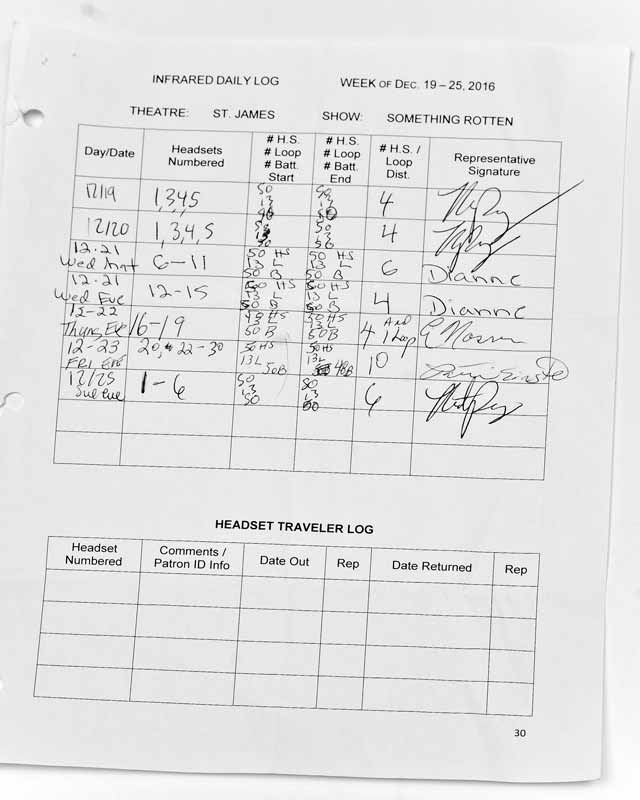 INFRARED DAILY LOG WEEK OF DEC. 19 – 25, 2016
THEATRE: ST. JAMES SHOW: SOMETHING ROTTEN
Day/Date
Headsets
Numbered
# H.S.
# Loop
# Batt.
Start
# H.S.
# Loop
# Batt.
End
# H.S. /
Loop
Dist.
Representative
Signature
12/19
1,3,4,5
50
13
50
13
50
4
12/20
1,3,4,5
50
13
50
50
13
50
4
12.21
Wed Mat
6-11
50 HS
13 L
50 B
50 HS
13 L
50 B
6
Dianne
12.21
Wed Eve
12-15
50 HS
13 L
50 B
50 HS
13 L
50 B
4
Dianne
12-22
Thurs Eve
16-19
13 L
50 B
50 HS
13 L
50B
4 And
1 Loop
12-23
FRI EVE
20, 22-30
50HS
13L
50B
50HS
13L
48B
10
12/25
Sue Eve
1-6
50
13
50
50
13
50
6
HEADSET TRAVELER LOG
Headset
Numbered
Comments /
Patron ID Info
Date Out
Rep
Date Returned
Rep
30